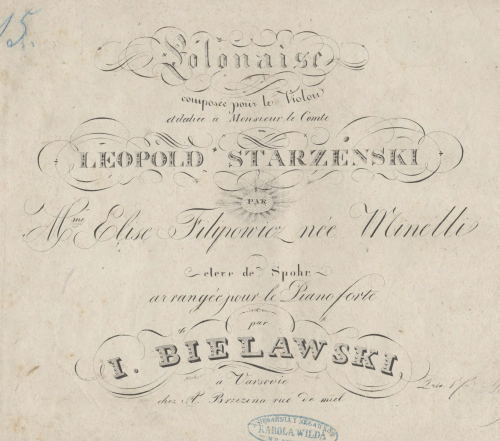 15.
Polonaise
composée pour le Violon
et dediée à Monsieur le Comte
LEOPOLD STARZENSKI
PAR
Mme Elise Filipowicz née Minelli
eleve de Spohr
arrangée pour le Piano forte
par
I. BIELAWSKI
à Varsovie
chez A. Brzezina rue de miel
KAROLA WILDA